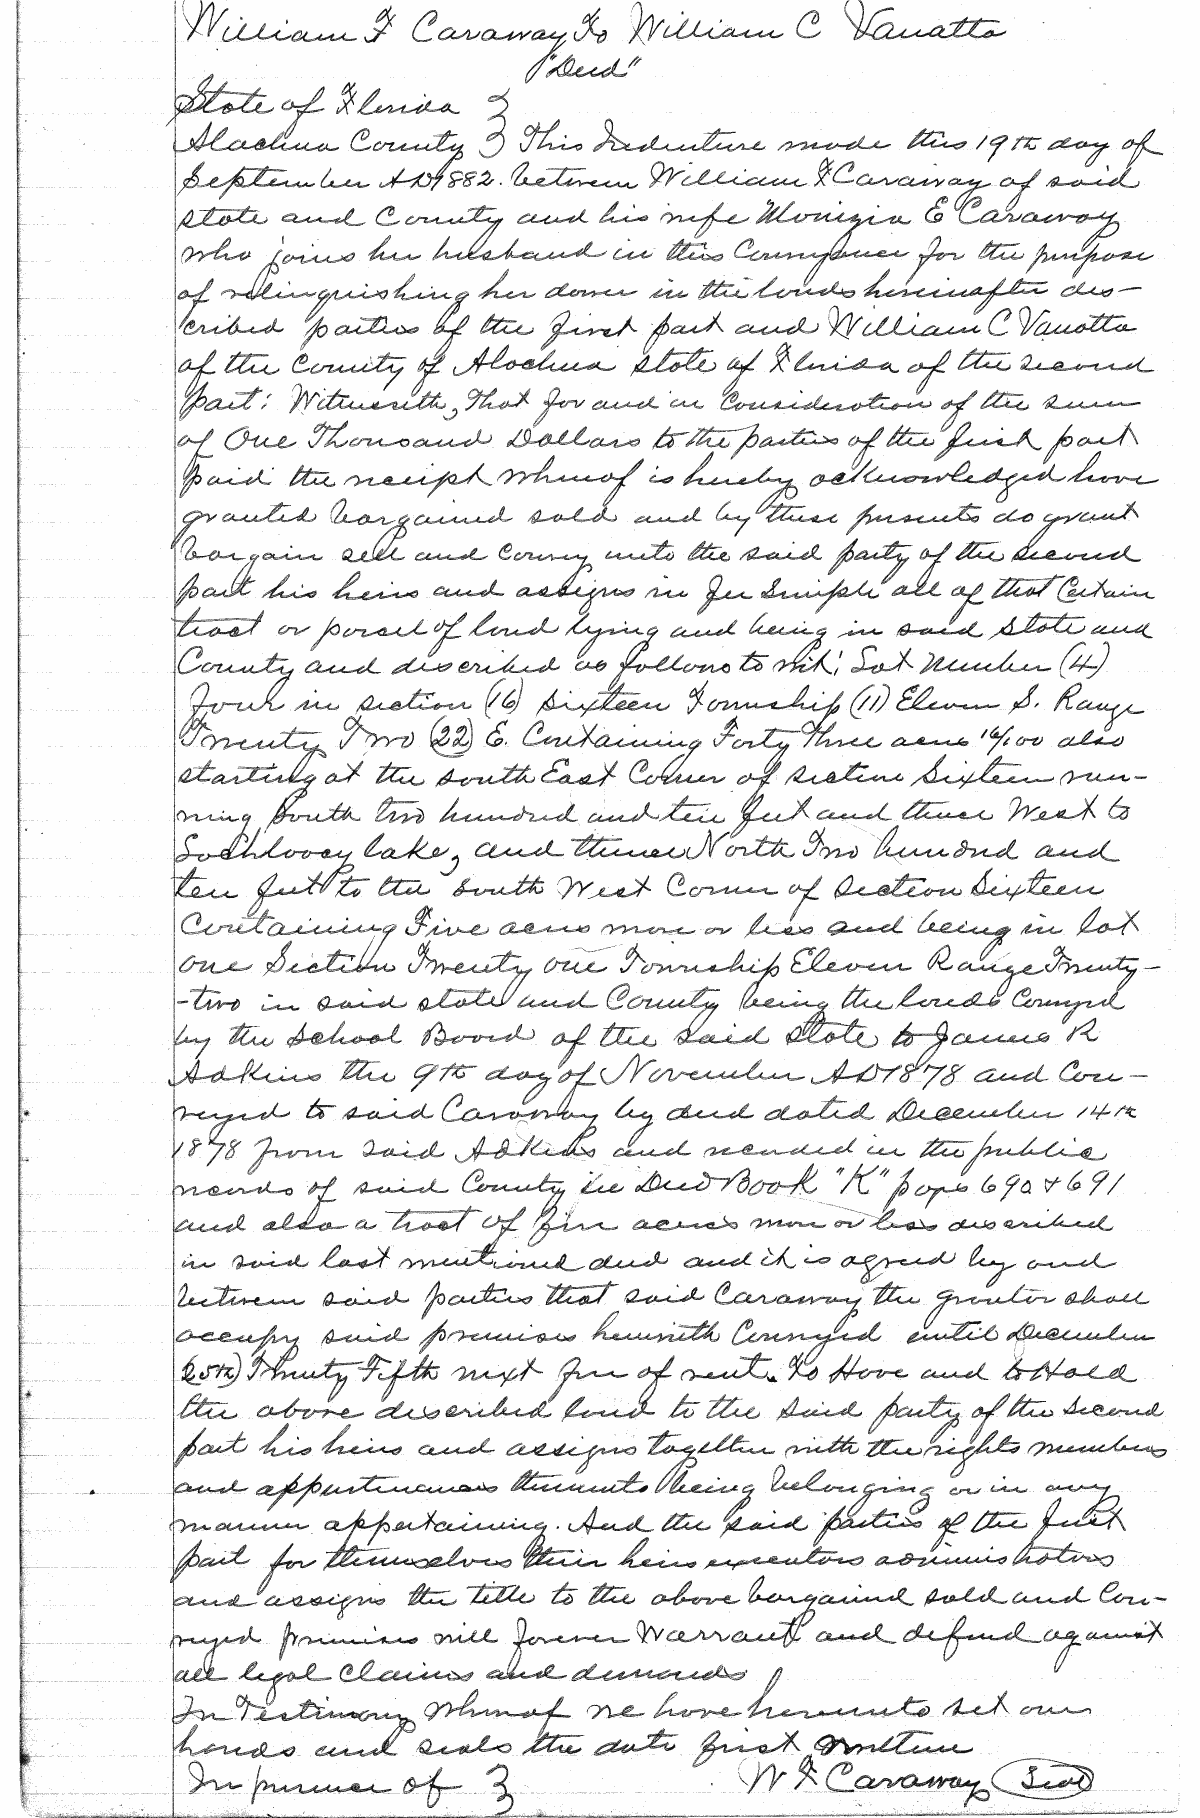 William F Caraway To William C Vanatta
"Deed"
State of Florida }
Alachua County } This Indenture made this 19th day of
September AD 1882. between William F Caraway of said
state and County and his wife E Caraway
who joins her husband in this Conveyance for the purpose
of relinquishing her dower in the lands hereinafter des-
cribed parties of the first part and William C Vanatta
of the County of Alachua State of Florida of the second
part: Witnesseth, That for and in Consideration of the sum
of One Thousand Dollars to the parties of the first part
paid the receipt whereof is hereby acknowledged have
granted bargained sold and by these presents do grant
bargain sell and Convey unto the said party of the second
part his heirs and assigns in Fee Simple all of that Certain
tract or parcel of land lying and being in said State and
County and described as follows to wit: Lot Number (4)
Four in section (16) Sixteen Township (11) Eleven S. Range
Twenty Two (22) E. Containing Forty Three acres 16/100 also
starting at the south East Corner of section Sixteen run-
ning South two hundred and ten feet and thence West to
Lochloosy lake, and thence North Two hundred and
ten feet to the South West Corner of Section Sixteen
Containing Five acres more or less and being in lot
one Section Twenty one Township Eleven Range Twenty-
-two in said state and County being the lands Conveyed
by the School Board of the said State to James R
Adkins the 9th day of November AD 1878 and Con-
veyed to said Caraway by deed dated December 14th
1878 from said Adkins and recorded in the public
records of said County in Deed Book "K" pages 690 & 691
and also a tract of five acres more or less described
in said last mentioned deed and it is agreed by and
between said parties that said Caraway the grantor shall
occupy said premises herewith Conveyed until December
(25th) Twenty Fifth next free of rent. To Have and to Hold
the above described land to the said party of the second
part his heirs and assigns together with the rights members
and appurtenances thereunto being belonging or in any
manner appertaining. And the said parties of the first
part for themselves their heirs executors administrators
and assigns the title to the above bargained sold and Con-
veyed premises will forever Warrant and defend against
all legal Claims and demands
In Testimony Whereof we have hereunto set our
hands and seals the date first written
In presence of } W F Caraway (Seal)